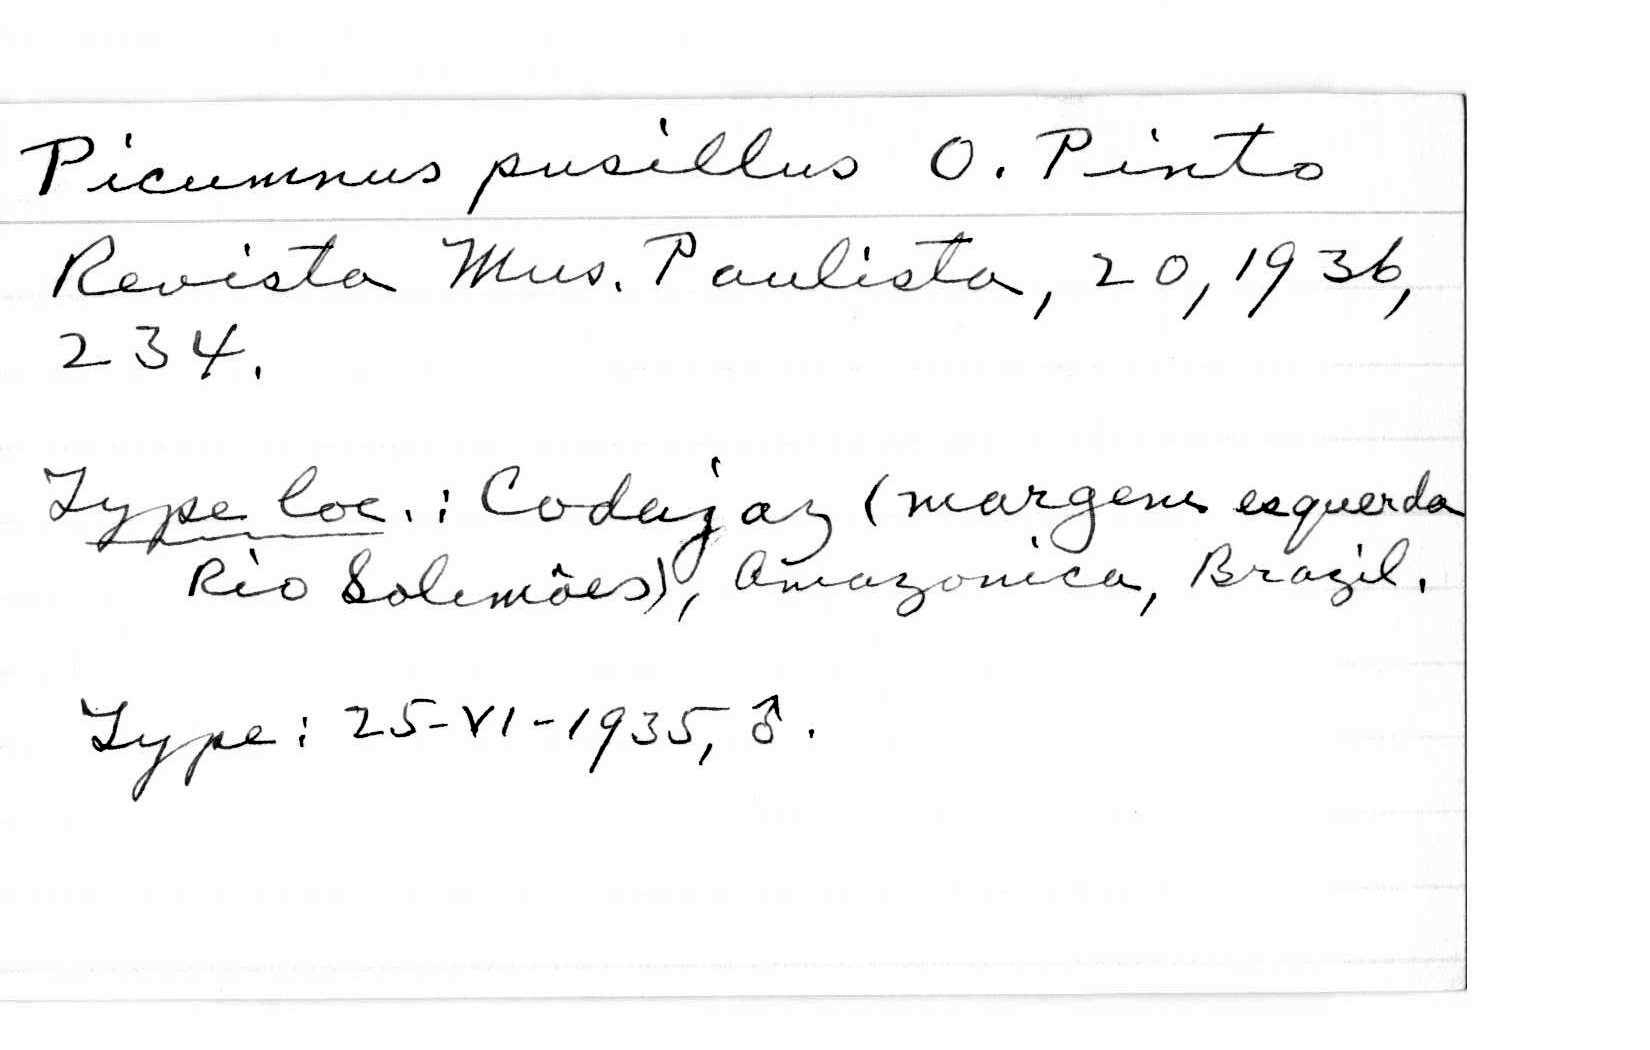 Picumnus pusillus O. Pinto
Revista Mus. Paulista, 20, 1936,
234.
Type loc.: Codajaz (margem esquerda
Rio Solimões), Amazonica, Brazil.
Type: 25-VI-1935, ♂.